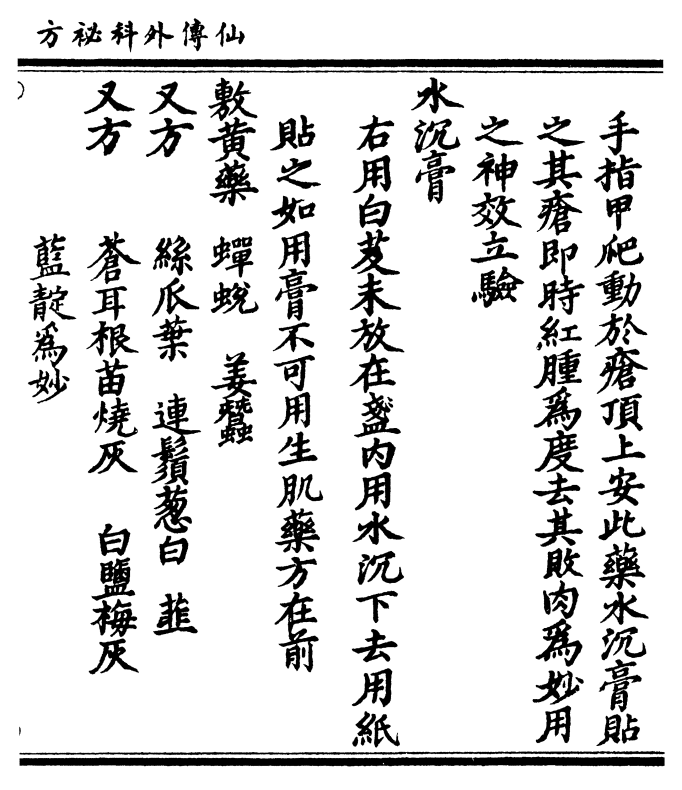 仙傳外科祕方
手指甲爬動於瘡頂上安此藥水沉膏貼
之其瘡即時紅腫爲度去其敗肉爲妙用
之神效立驗
水沉膏
右用白芨末放在盞内用水沉下去用紙
貼之如用膏不可用生肌藥方在前
敷黄藥 蟬蛻 姜蠶
又方 絲瓜葉 連鬚葱白 韮
又方 蒼耳根苗燒灰 白鹽梅灰
藍靛爲妙